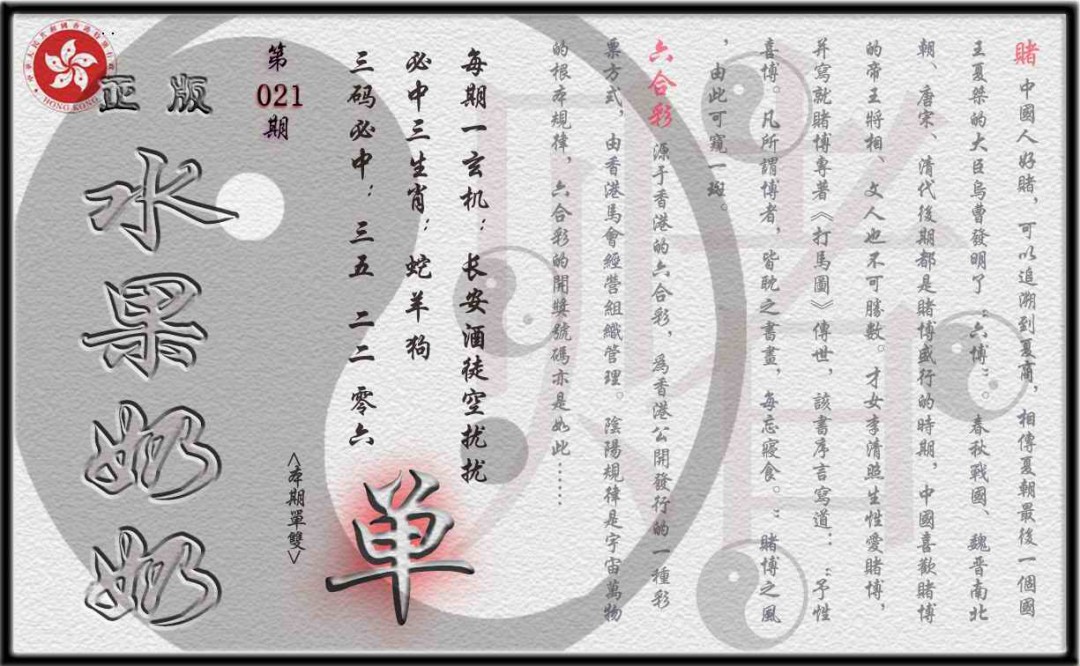 賭 中國人好賭，可以追溯到夏商，相傳夏朝最後一個國
王夏桀的大臣烏曹發明了“六博”。春秋戰國、魏晉南北
朝、唐宋、清代後期都是賭博盛行的時期，中國喜歡賭博
的帝王將相、文人也不可勝數。才女李清照生性愛賭博，
并寫就賭博專著《打馬圖》傳世，該書序言寫道：“予性
喜博。凡所謂博者，皆耽之書畫，每忘寢食。”賭博之風
，由此可窺一斑。
六合彩 源于香港的六合彩，爲香港公開發行的一種彩
票方式，由香港馬會經營組織管理。陰陽規律是宇宙萬物
的根本規律，六合彩的開獎號碼亦是如此……
每期一玄机：长安酒徒空扰扰
必中三生肖：蛇羊狗
三码必中：三五 二二 零六
单
<本期單雙>
第021期
正版
水果奶奶
HONG KONG